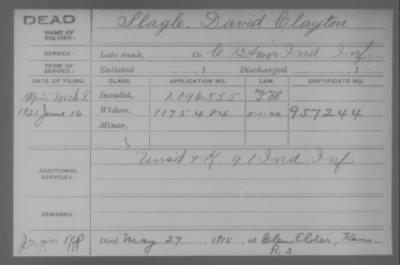 DEAD
NAME OF SOLDIER:
Slagle, David Clayton
SERVICE:
Late rank, Co. C, 124 Ind Inf.
TERM OF SERVICE:
Enlisted , 1 Discharged , 1
DATE OF FILING. CLASS. APPLICATION NO. LAW. CERTIFICATE NO.
Invalid, 1096555
1921 June 16 Widow, 1175484 957244
Minor,
ADDITIONAL SERVICES:
Unas'd & K. 91 Ind Inf
REMARKS:
Died May 27, 1915, at Glen Elder, Kans.
R. 3